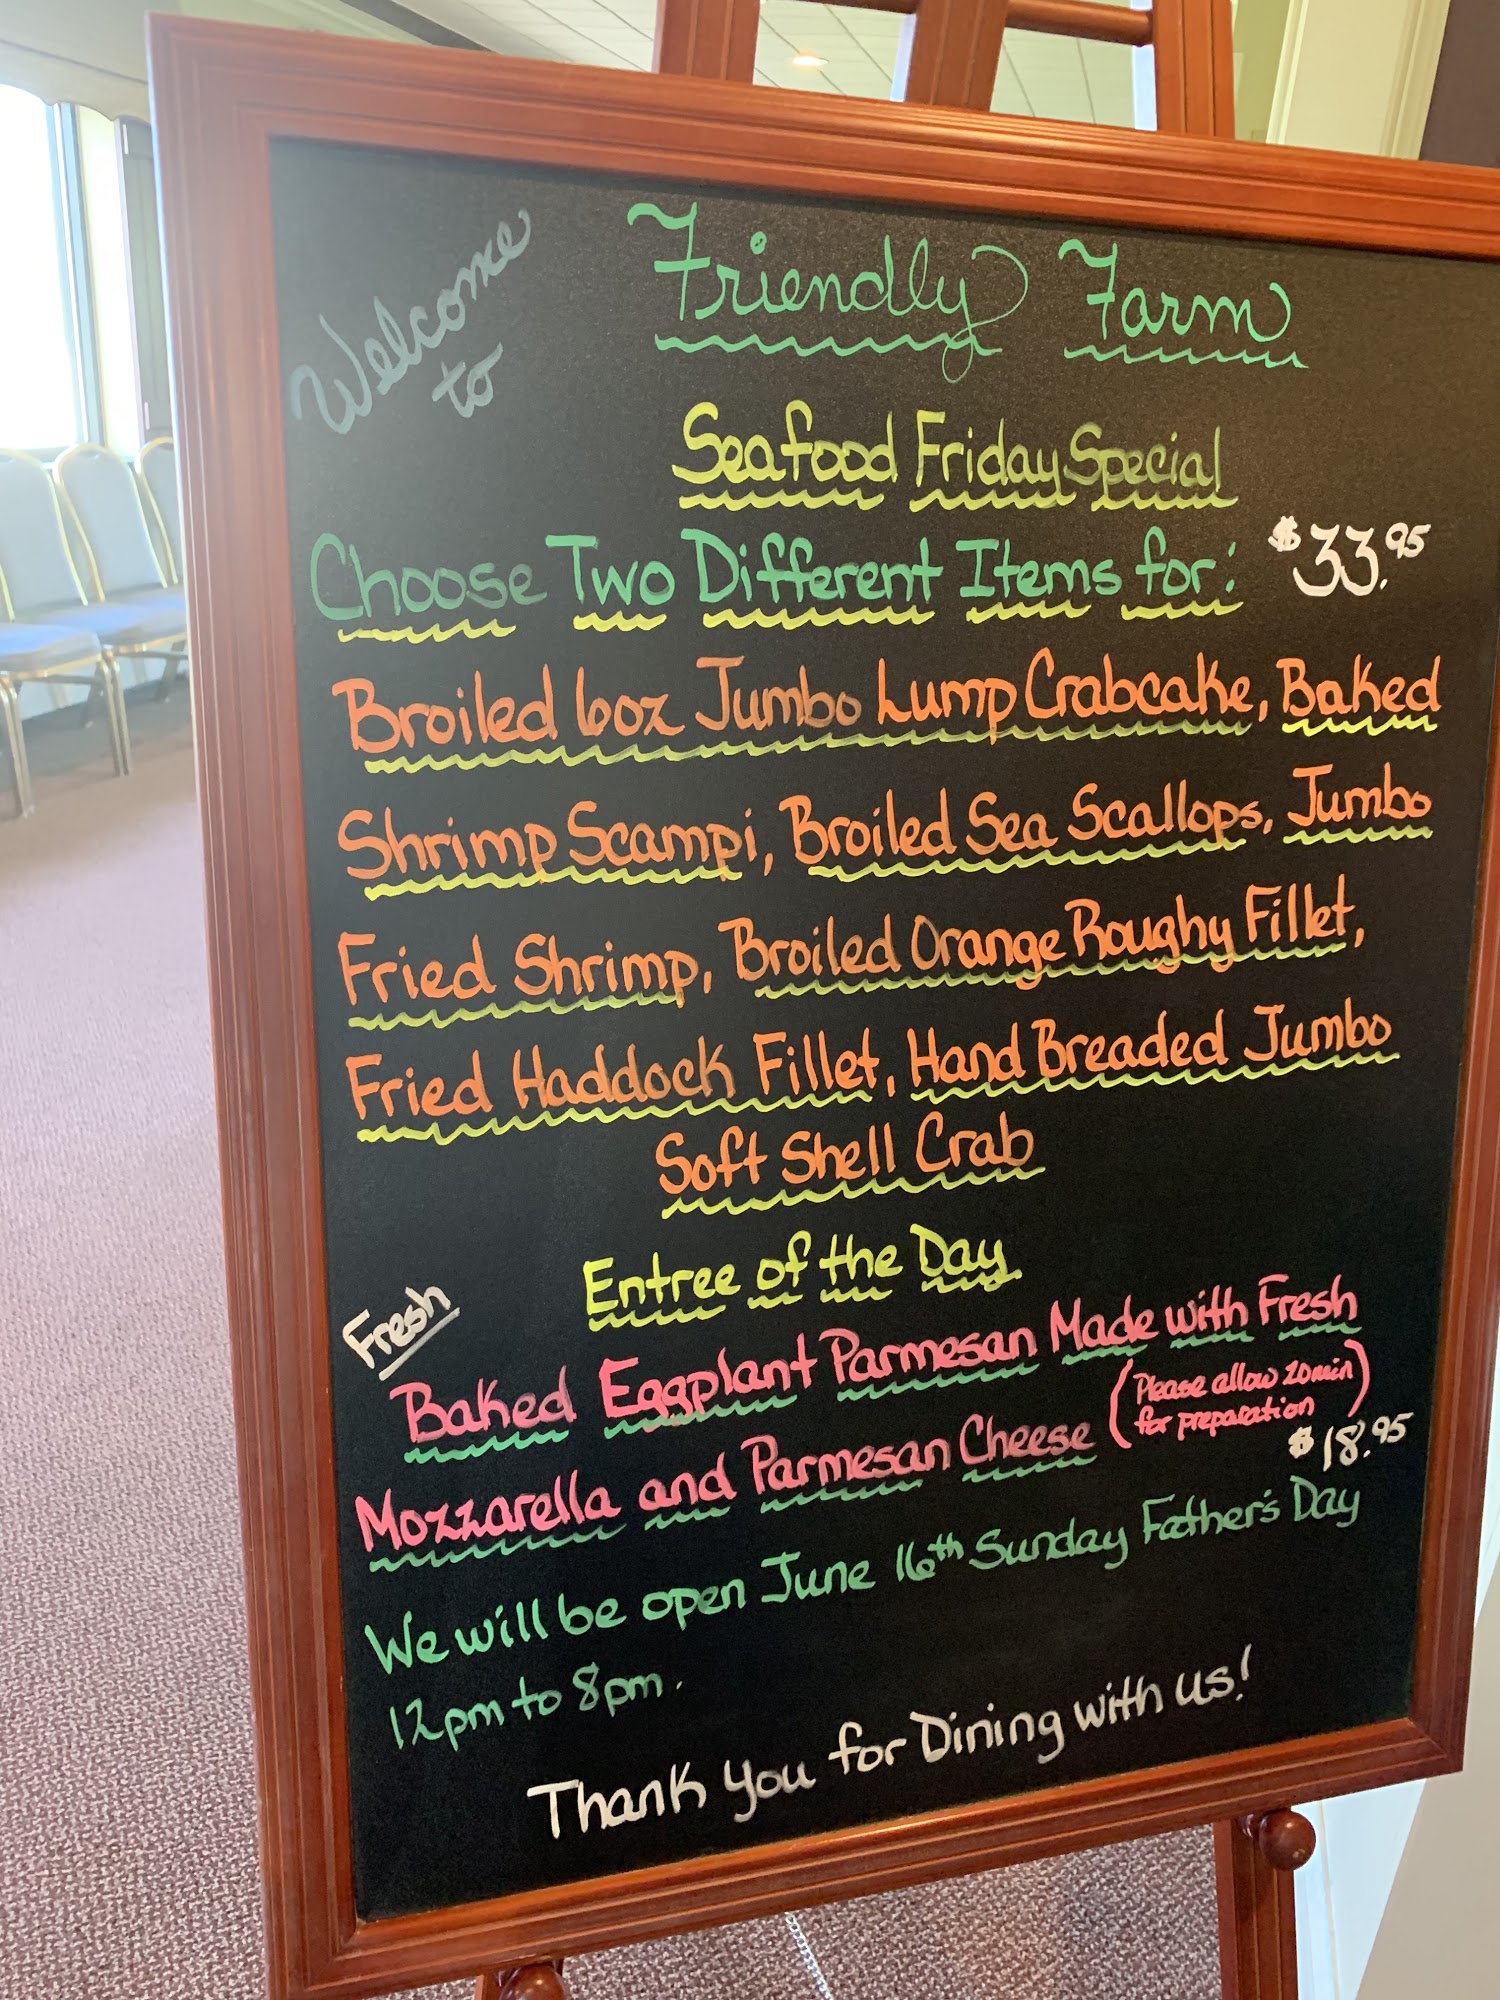 Welcome to
Friendly Farm
Seafood Friday Special
Choose Two Different Items for: $33.95
Broiled 6oz Jumbo Lump Crabcake, Baked
Shrimp Scampi, Broiled Sea Scallops, Jumbo
Fried Shrimp, Broiled Orange Roughy Fillet,
Fried Haddock Fillet, Hand Breaded Jumbo
Soft Shell Crab
Entree of the Day
Fresh
Baked Eggplant Parmesan Made with Fresh
Mozzarella and Parmesan Cheese (Please allow 20min
for preparation)
$18.95
We will be open June 16th Sunday Father's Day
12pm to 8pm.
Thank You for Dining with us!